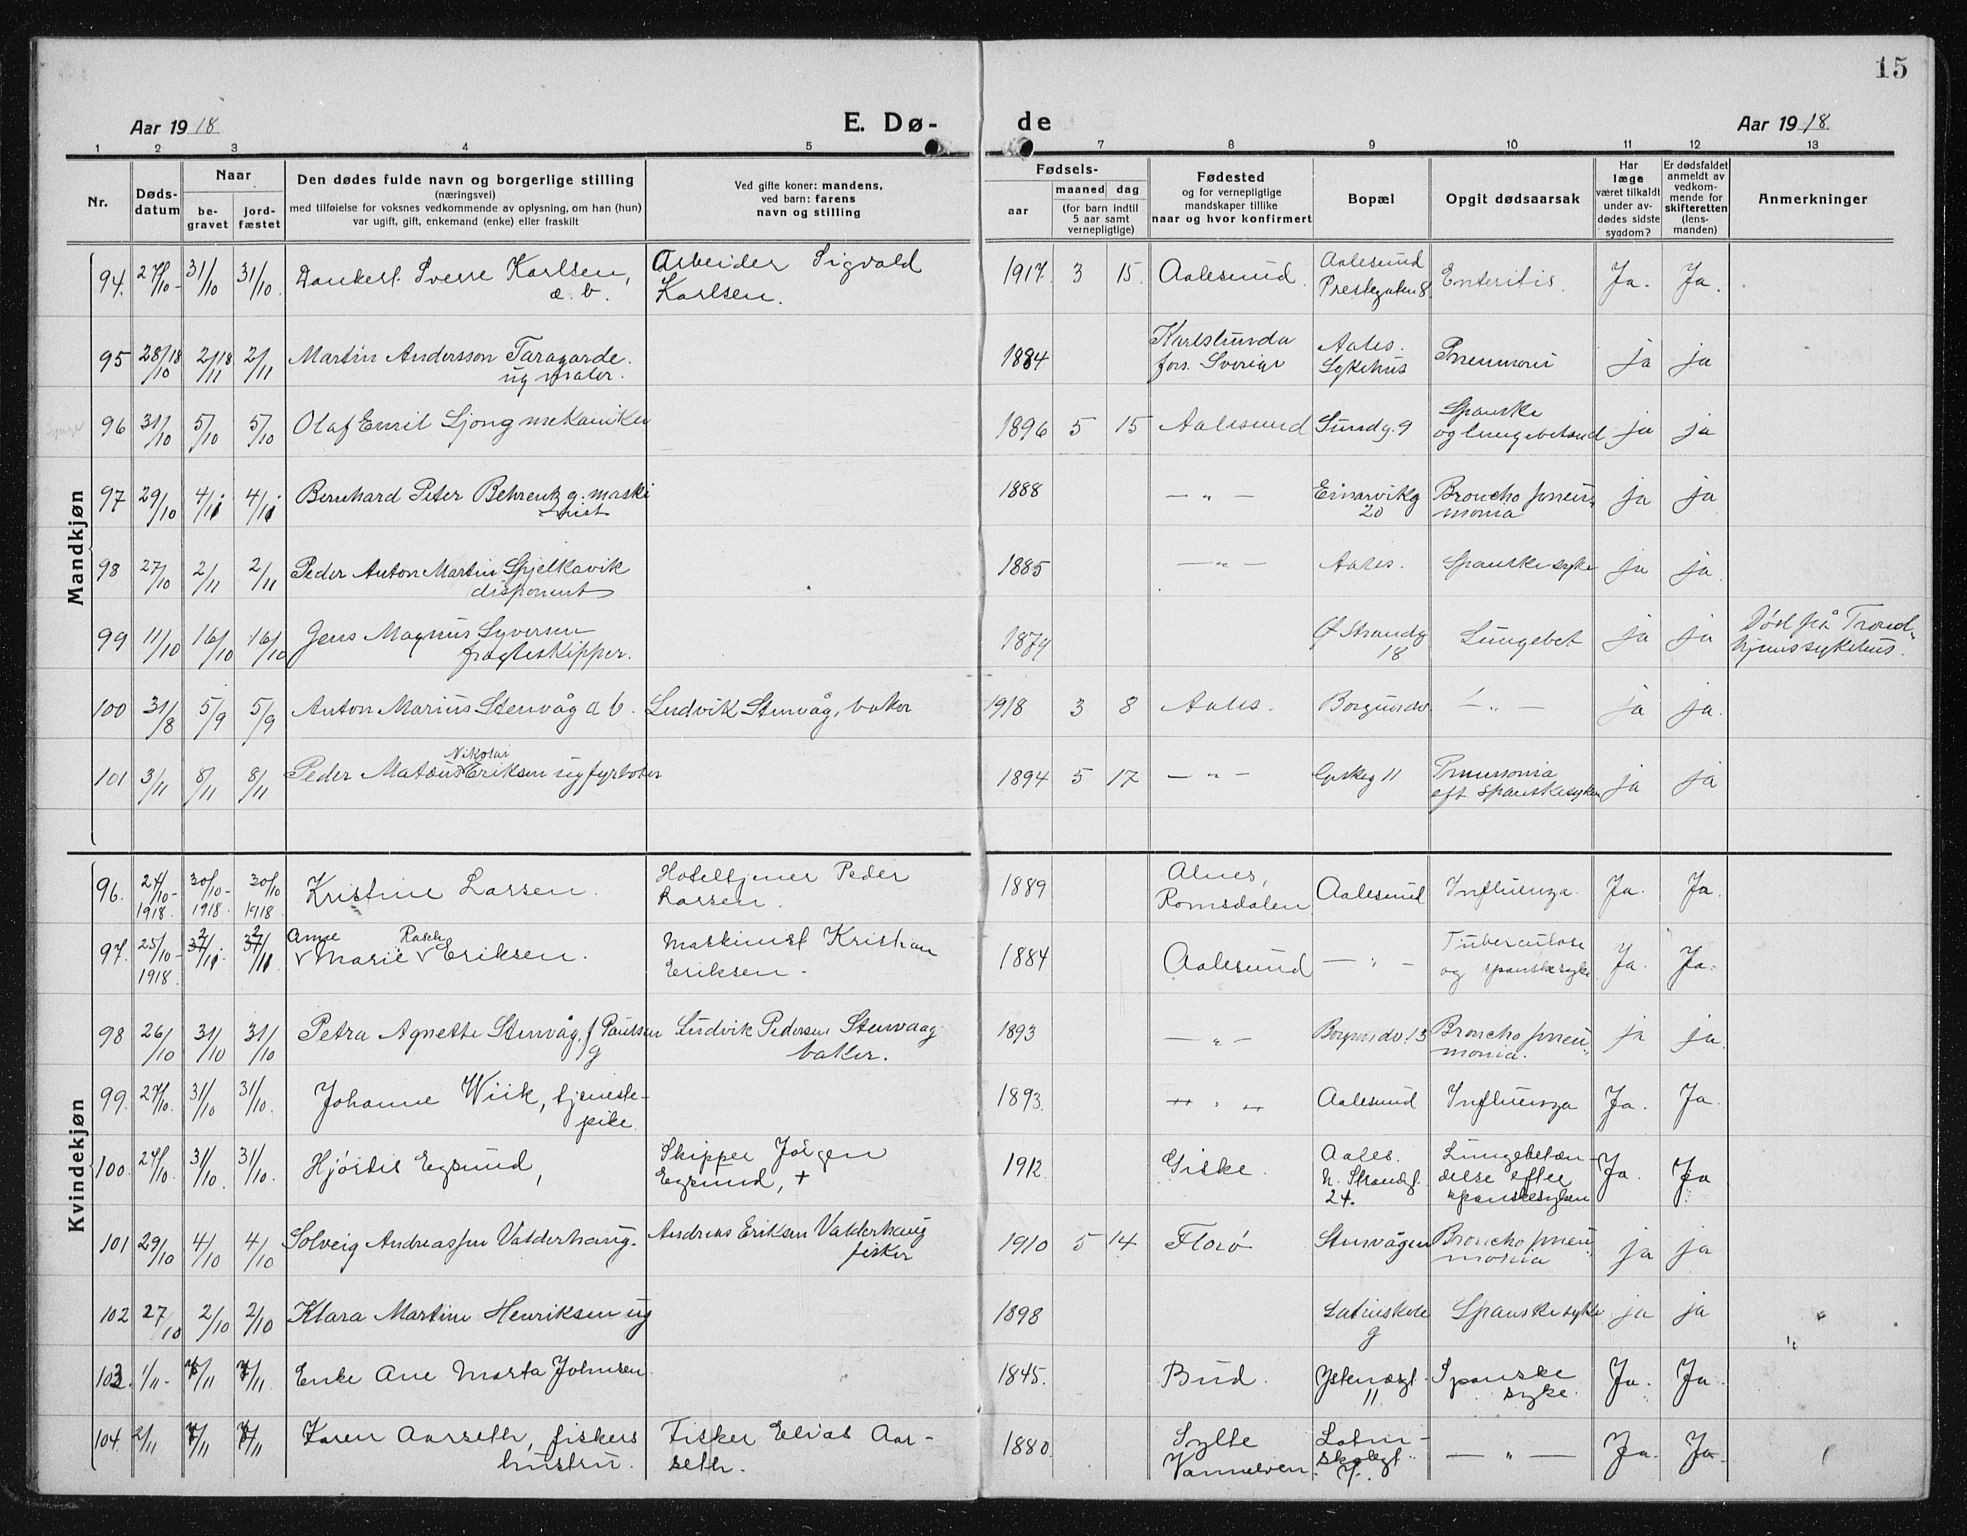 15
Aar 1918
E. Dø-
de
Aar 1918
1 2 3 4 5 7 8 9 10 11 12 13
Nr.
Døds-
datum
Naar
be-
gravet
jord-
fæstet
Den dødes fulde navn og borgerlige stilling
(næringsvei)
med tilføielse for voksnes vedkommende av oplysning, om han (hun)
var ugift, gift, enkemand (enke) eller fraskilt
Ved gifte koner: mandens,
ved barn: farens
navn og stilling
Fødsels-
aar
maaned dag
(for barn indtil
5 aar samt
vernepligtige)
Fødested
og for vernepligtige
mandskaper tillike
naar og hvor konfirmert
Bopæl
Opgit dødsaarsak
Har
læge
været tilkaldt
under av-
dødes sidste
sygdom?
Er dødsfaldet
anmeldt av
vedkom-
mende for
skifteretten
(lens-
manden)
Anmerkninger
Mandkjøn
94. 27/10- 31/10 31/10. Dankert Sverre Karlsen, Arbeider Sigvald 1917. 3 15. Aalesund. Aalesund Enteritis. Ja. Ja.
æ. b. Karlsen. Prestegaten 8
95 28/10 18 2/11 18 2/11 Martin Andersson Taragarde. 1884 Karlslunda Aales. Pneumoni ja ja
ug mater. fors. Sverige Sykehus
96 31/10 5/10 5/10 Olaf Emil Ljong mekaniker 1896 5 15 Aalesund Sundg. 9 Spanske ja ja
og lungebetænd
97 29/10 4/11 4/11 Bernhard Peter Behrentz g. maski 1888 — " — Einarvikg Broncho pneu- ja ja
nist 20 monia
98 27/10 2/11 2/11 Peder Anton Martin Spjelkavik 1885 — " — Aales. Spanske syke ja ja.
disponent
99 11/10 16/10 16/10 Jens Magnus Syversen 1879 Ø Strandg Lungebet ja ja Død på Trond-
fragteskipper. 18 hjems sykehus.
100 31/8 5/9 5/9 Anton Marius Stenvåg æ b. Ludvik Stenvåg, baker 1918 3 8 Aales. Borgundv — " — ja ja.
101 3/11 8/11 8/11 Peder Matæus Nikolai Eriksen ug fyrbøter 1894 5 17 — " — 11 Pneumonia ja ja
eft. spanskesyken
Kvindekjøn
96. 24/10- 30/10- 30/10 Kristine Larsen. Hoteltjener Peder 1889 Alnes, Aalesund Influenza. Ja. Ja.
1918. 1918. 1918. Larsen. Romsdalen
97. 25/10- 2/11. 2/11 Anne Rasch Maskinist Kristian 1884 Aalesund — " — Tuberculose Ja. Ja.
1918. v Marie v Eriksen. Eriksen. og spanskesyke
98 26/10 31/10 31/10 Petra Agnette Stenvåg. f Paulsen Ludvik Pedersen Stenvaag 1893 — " — Borgundv. 13 Broncho pneu- ja ja.
g baker. monia.
99. 27/10. 31/10 31/10. Johanne Wiik, tjeneste- 1893. — " — Aalesund Influenza Ja. Ja.
pike.
100. 27/10 31/10. 31/10. Hjørdis Egsund, Skipper Jørgen 1912. Giske. Aales. Lungebetæn- Ja. Ja
Egsund, + N. Strandgt. delse efter
24. spanskesyken
101 29/10 4/10 4/10 Solveig Andreassen Valderhaug. Andreas Eriksen Valderhaug 1910 5 14 Florø Stenvågen Broncho pneu- ja ja
fisker monia
102 27/10 2/10 2/10 Klara Martine Henriksen ug 1898 Latinskole Spanske syke ja ja
g
103. 1/11- 7/11 7/11 Enke Ane Marta Johnsen 1845. Bud. 11. Spanske Ja. Ja.
syke.
104. 2/11 7/11 7/11 Karen Aarseth, fiskers Fisker Elias Aar- 1880. Sylte Latin- — " — Ja. Ja.
hustru. seth. Vannelven. skolegt.